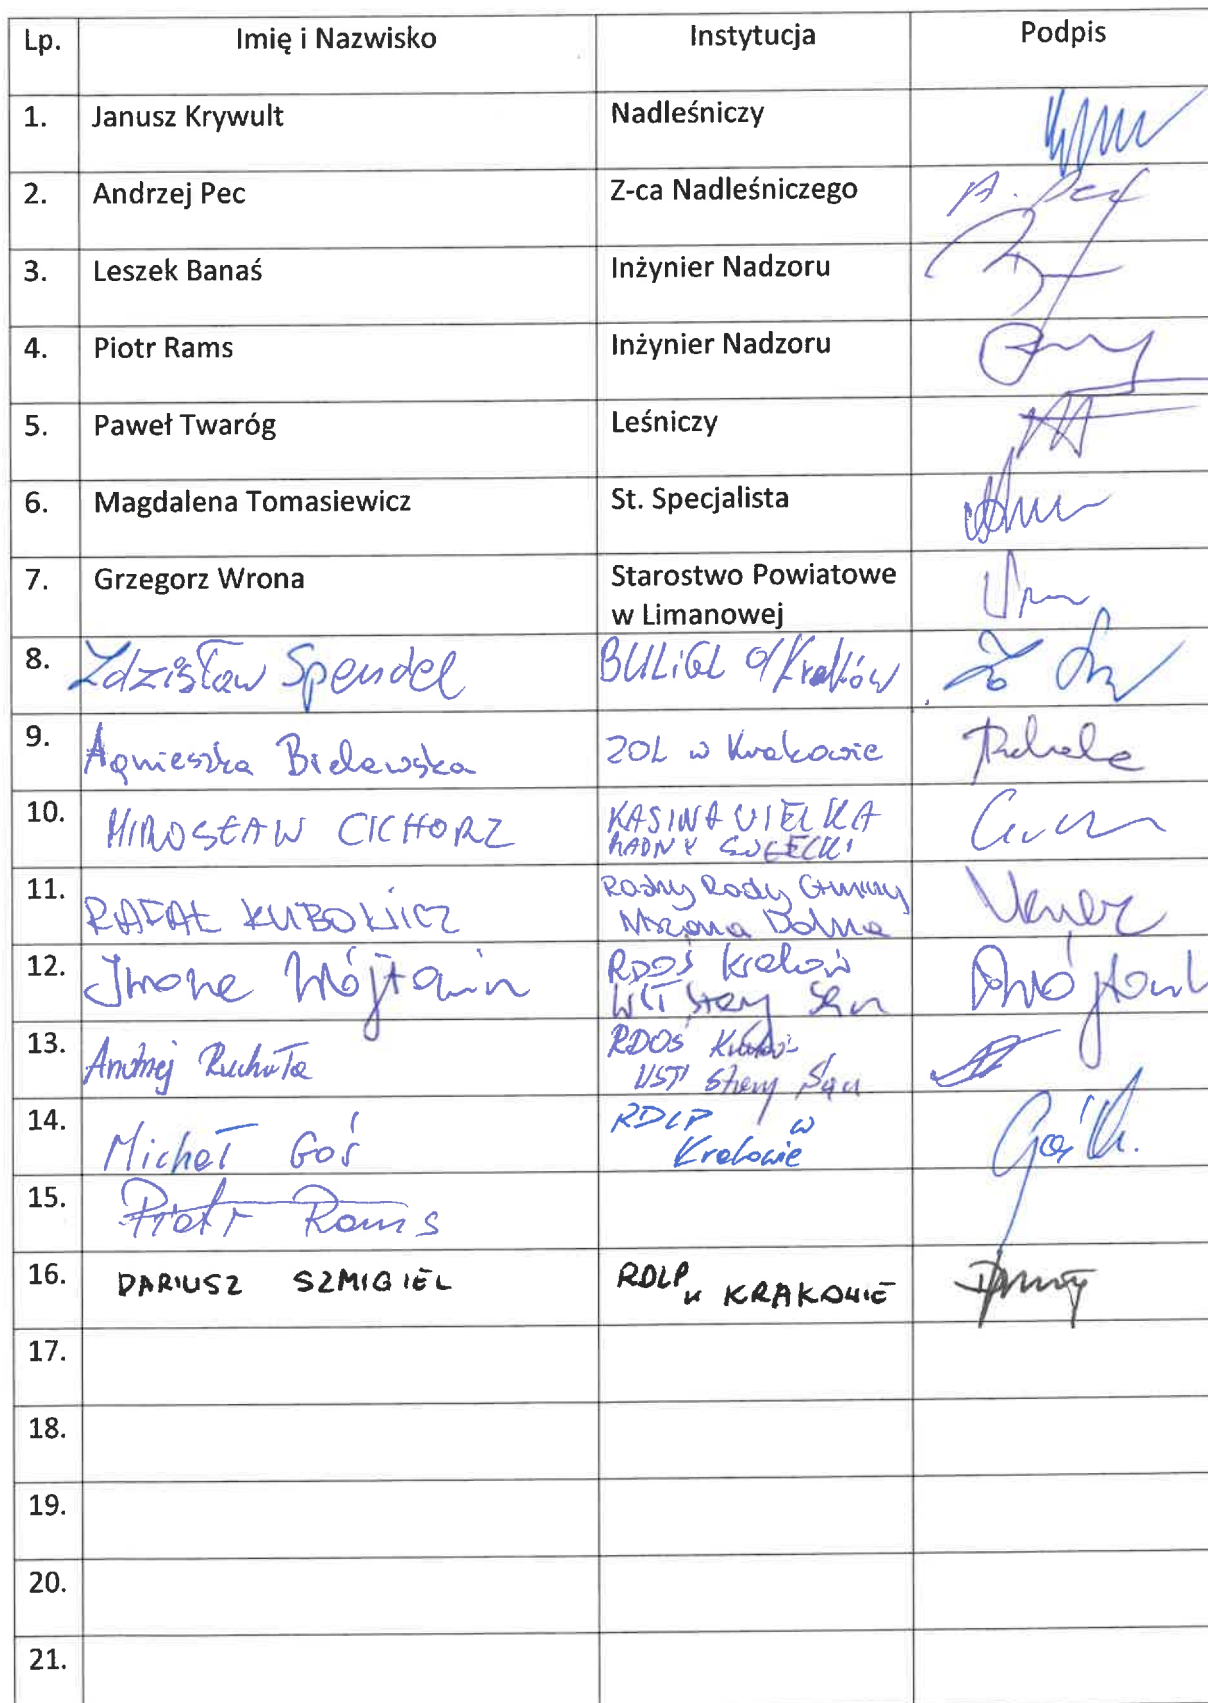 Lp. Imię i Nazwisko Instytucja Podpis
1. Janusz Krywult Nadleśniczy
2. Andrzej Pec Z-ca Nadleśniczego A. Pec
3. Leszek Banaś Inżynier Nadzoru
4. Piotr Rams Inżynier Nadzoru
5. Paweł Twaróg Leśniczy
6. Magdalena Tomasiewicz St. Specjalista
7. Grzegorz Wrona Starostwo Powiatowe
w Limanowej
8. Zdzisław Spendel BULiGL o/Kraków
9. Agnieszka Bielawska ZOL w Krakowie
10. MIROSŁAW CICHORZ KASINA WIELKA
RADNY SOŁECKI
11. RAFAŁ KUBOWICZ Radny Rady Gminy
Mszana Dolna
12. Iwona Wójtowin RDOŚ Kraków
Stary Sącz
13. Andrzej Ruchała RDOŚ Kraków
Stary Sącz
14. Michał Goś RDLP w
Krakowie
15. Piotr Rams
16. DARIUSZ SZMIGIEL RDLP w KRAKOWIE
17.
18.
19.
20.
21.